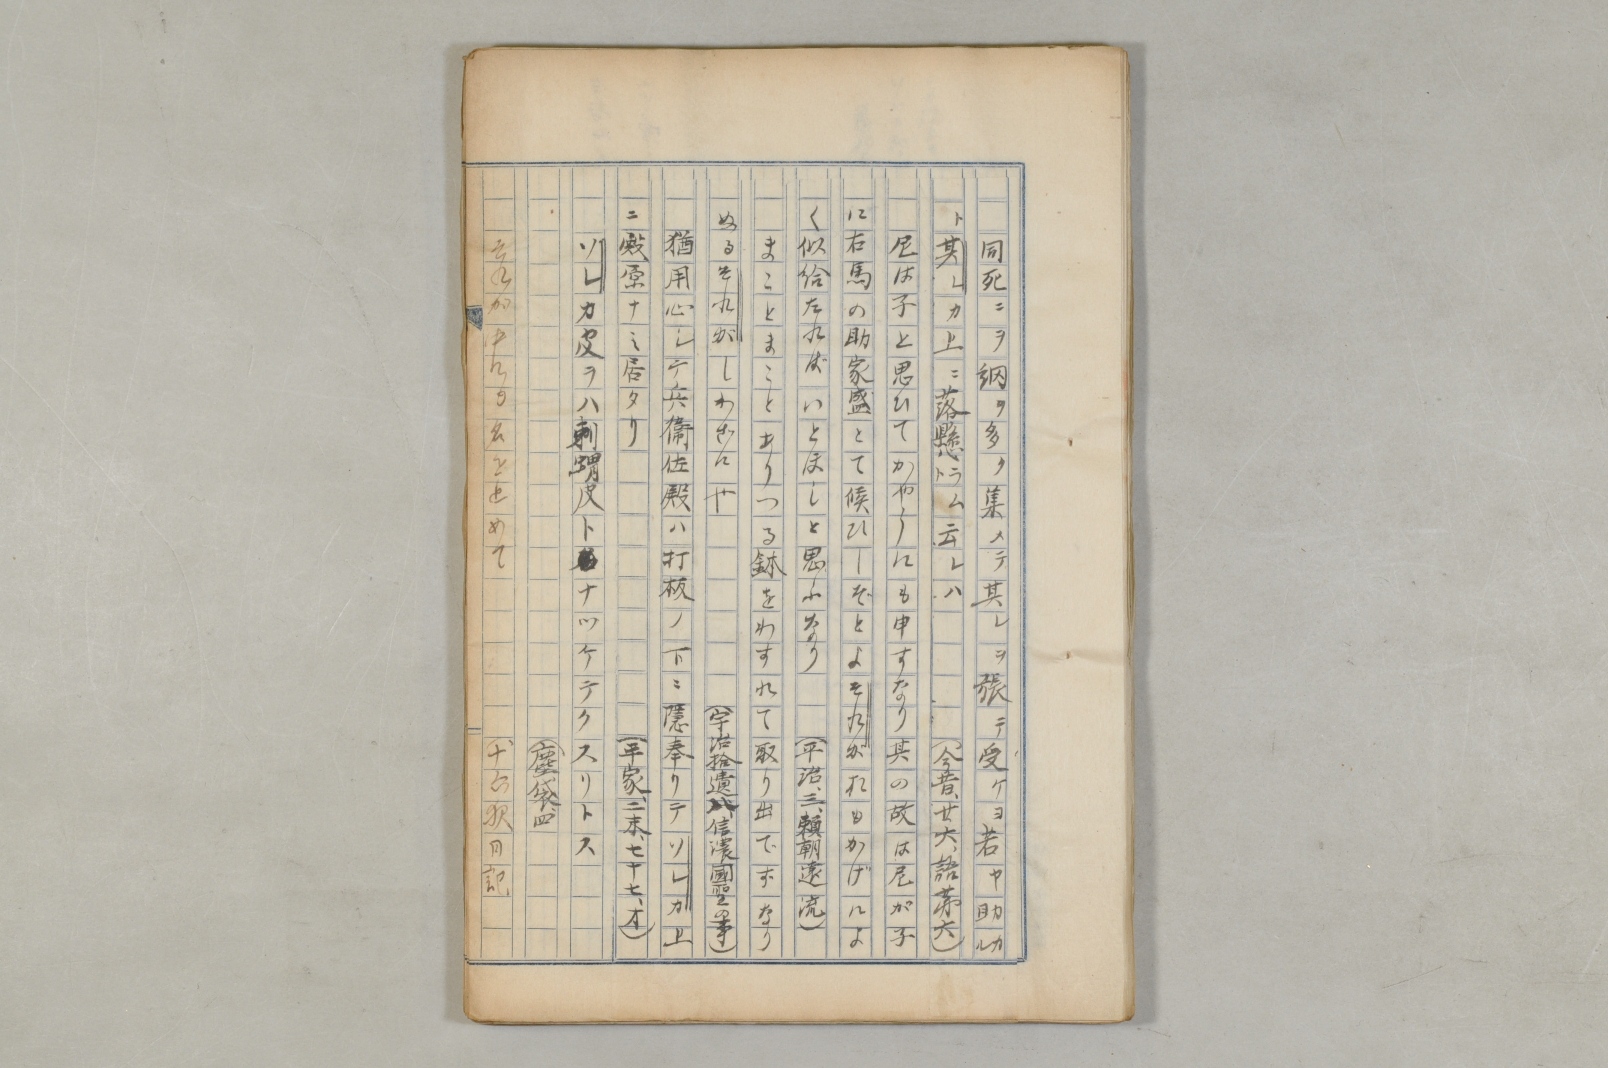 同死ニヲ網ヲ多ク集メテ其レヲ張テ受ケヨ若ヤ助カル
ト其レカ上ニ落懸ラムト云レハ
(今昔、廿六、語第六)
尼は子と思ひてかやうにも申すなり其の故は尼が子
に右馬の助家盛とて候ひしぞとよそれがおもかげによ
く似給たればいとほしと思ふなり
(平治、三、頼朝遠流)
まことまことありつる鉢をわすれて取り出でずなり
ぬるそれがしわざにや
(宇治拾遺八、信濃國聖の事)
猶用心シテ兵衛佐殿ハ打板ノ下ニ隠奉リテソレカ上
ニ殿原ナミ居タリ
(平家、二末、七十七、オ)
ソレカ皮ヲハ刺蝟皮トナツケテクスリトス
(塵袋、四)
それが中に
とゞめて
(十六夜日記